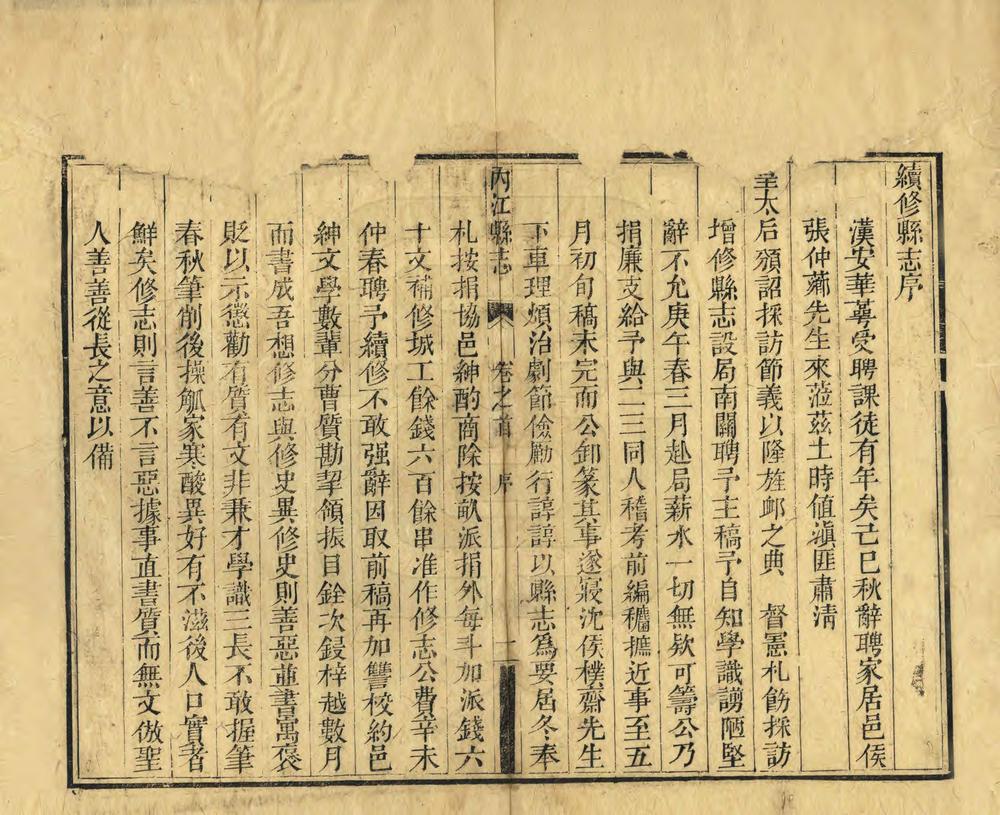 續修縣志序
漢安華蕚受聘課徒有年矣己巳秋辭聘家居邑侯
張仲薌先生來蒞茲土時値滇匪肅清
太后頒詔採訪節義以隆旌䘏之典 督憲札飭採訪
增修縣志設局南關聘予主稿予自知學識謭陋堅
辭不允庚午春三月赴局薪水一切無欵可籌公乃
捐廉支給予與二三同人稽考前編穮摭近事至五
月初旬稿未完而公卸篆其事遂寢沈侯樸齋先生
下車理煩治劇節儉勵行諄諄以縣志爲要居冬奉
內江縣志 卷之首 序 一
札按捐協邑紳酌商除按畝派捐外每斗加派錢六
十文補修城工餘錢六百餘串准作修志公費辛未
仲春聘予續修不敢强辭因取前稿再加讐校約邑
紳文學數輩分曹質勘挈領振目銓次鋟梓越數月
而書成吾想修志與修史異修史則善惡並書寓褒
貶以示懲勸有質有文非兼才學識三長不敢握筆
春秋筆削後操觚家寒酸異好有不滋後人口實者
鮮矣修志則言善不言惡據事直書質而無文倣聖
人善善從長之意以備